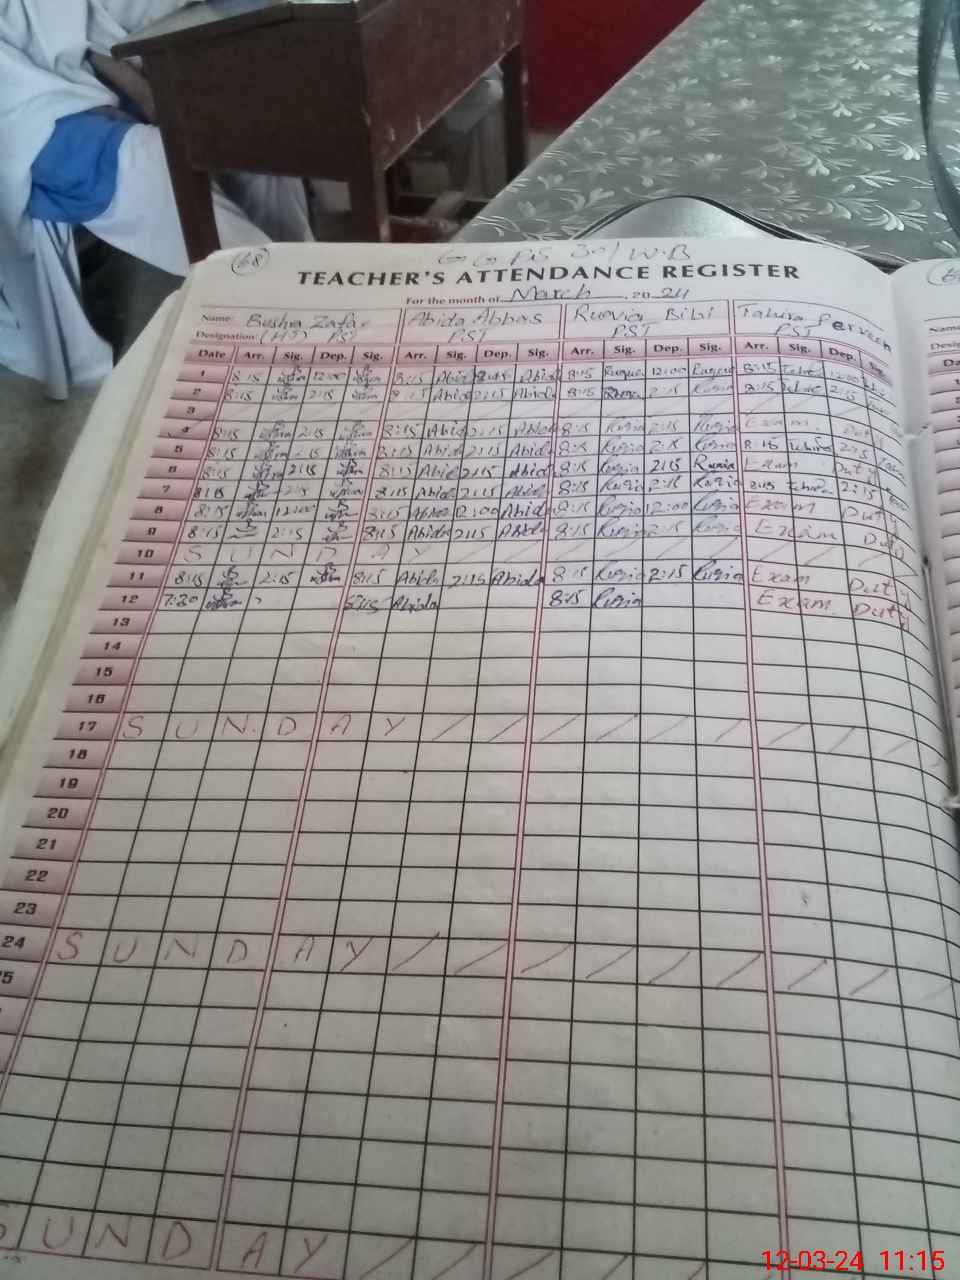 68
GGPS 30/W.B
TEACHER'S ATTENDANCE REGISTER
For the month of March, 2024
Name: Bushra Zafar Abida Abbas Ruqia Bibi Tahira Perveen
Designation: (HT) PST PST PST PST
Date Arr. Sig. Dep. Sig. Arr. Sig. Dep. Sig. Arr. Sig. Dep. Sig. Arr. Sig. Dep. Sig.
1 8:15 12:00 8:15 Abida Abida 8:15 12:00 8:15 12:00
2 8:15 2:15 8:15 Abida 2:15 Abida 8:15 2:15 Ruqia 8:15 2:15
3
4 8:15 2:15 8:15 Abida 2:15 Abida 8:15 Ruqia 2:15 Ruqia Exam Duty
5 8:15 2:15 8:15 Abida 2:15 Abida 8:15 Ruqia 2:15 Ruqia 8:15 Tahira 2:15
6 8:15 2:15 8:15 Abida 2:15 Abida 8:15 Ruqia 2:15 Ruqia Exam Duty
7 8:15 2:15 8:15 Abida 2:15 Abida 8:15 Ruqia 2:15 Ruqia Tahira 2:15
8 8:15 12:00 8:15 Abida 12:00 Abida 8:15 Ruqia 12:00 Ruqia Exam Duty
9 8:15 2:15 8:15 Abida 2:15 Abida 8:15 Ruqia 2:15 Ruqia Exam Duty
10 SUNDAY
11 8:15 2:15 8:15 Abida 2:15 Abida 8:15 Ruqia 2:15 Ruqia Exam Duty
12 7:30 8:15 Abida 8:15 Ruqia Exam Duty
13
14
15
16
17 SUNDAY
18
19
20
21
22
23
24 SUNDAY
5
SUNDAY
12-03-24 11:15